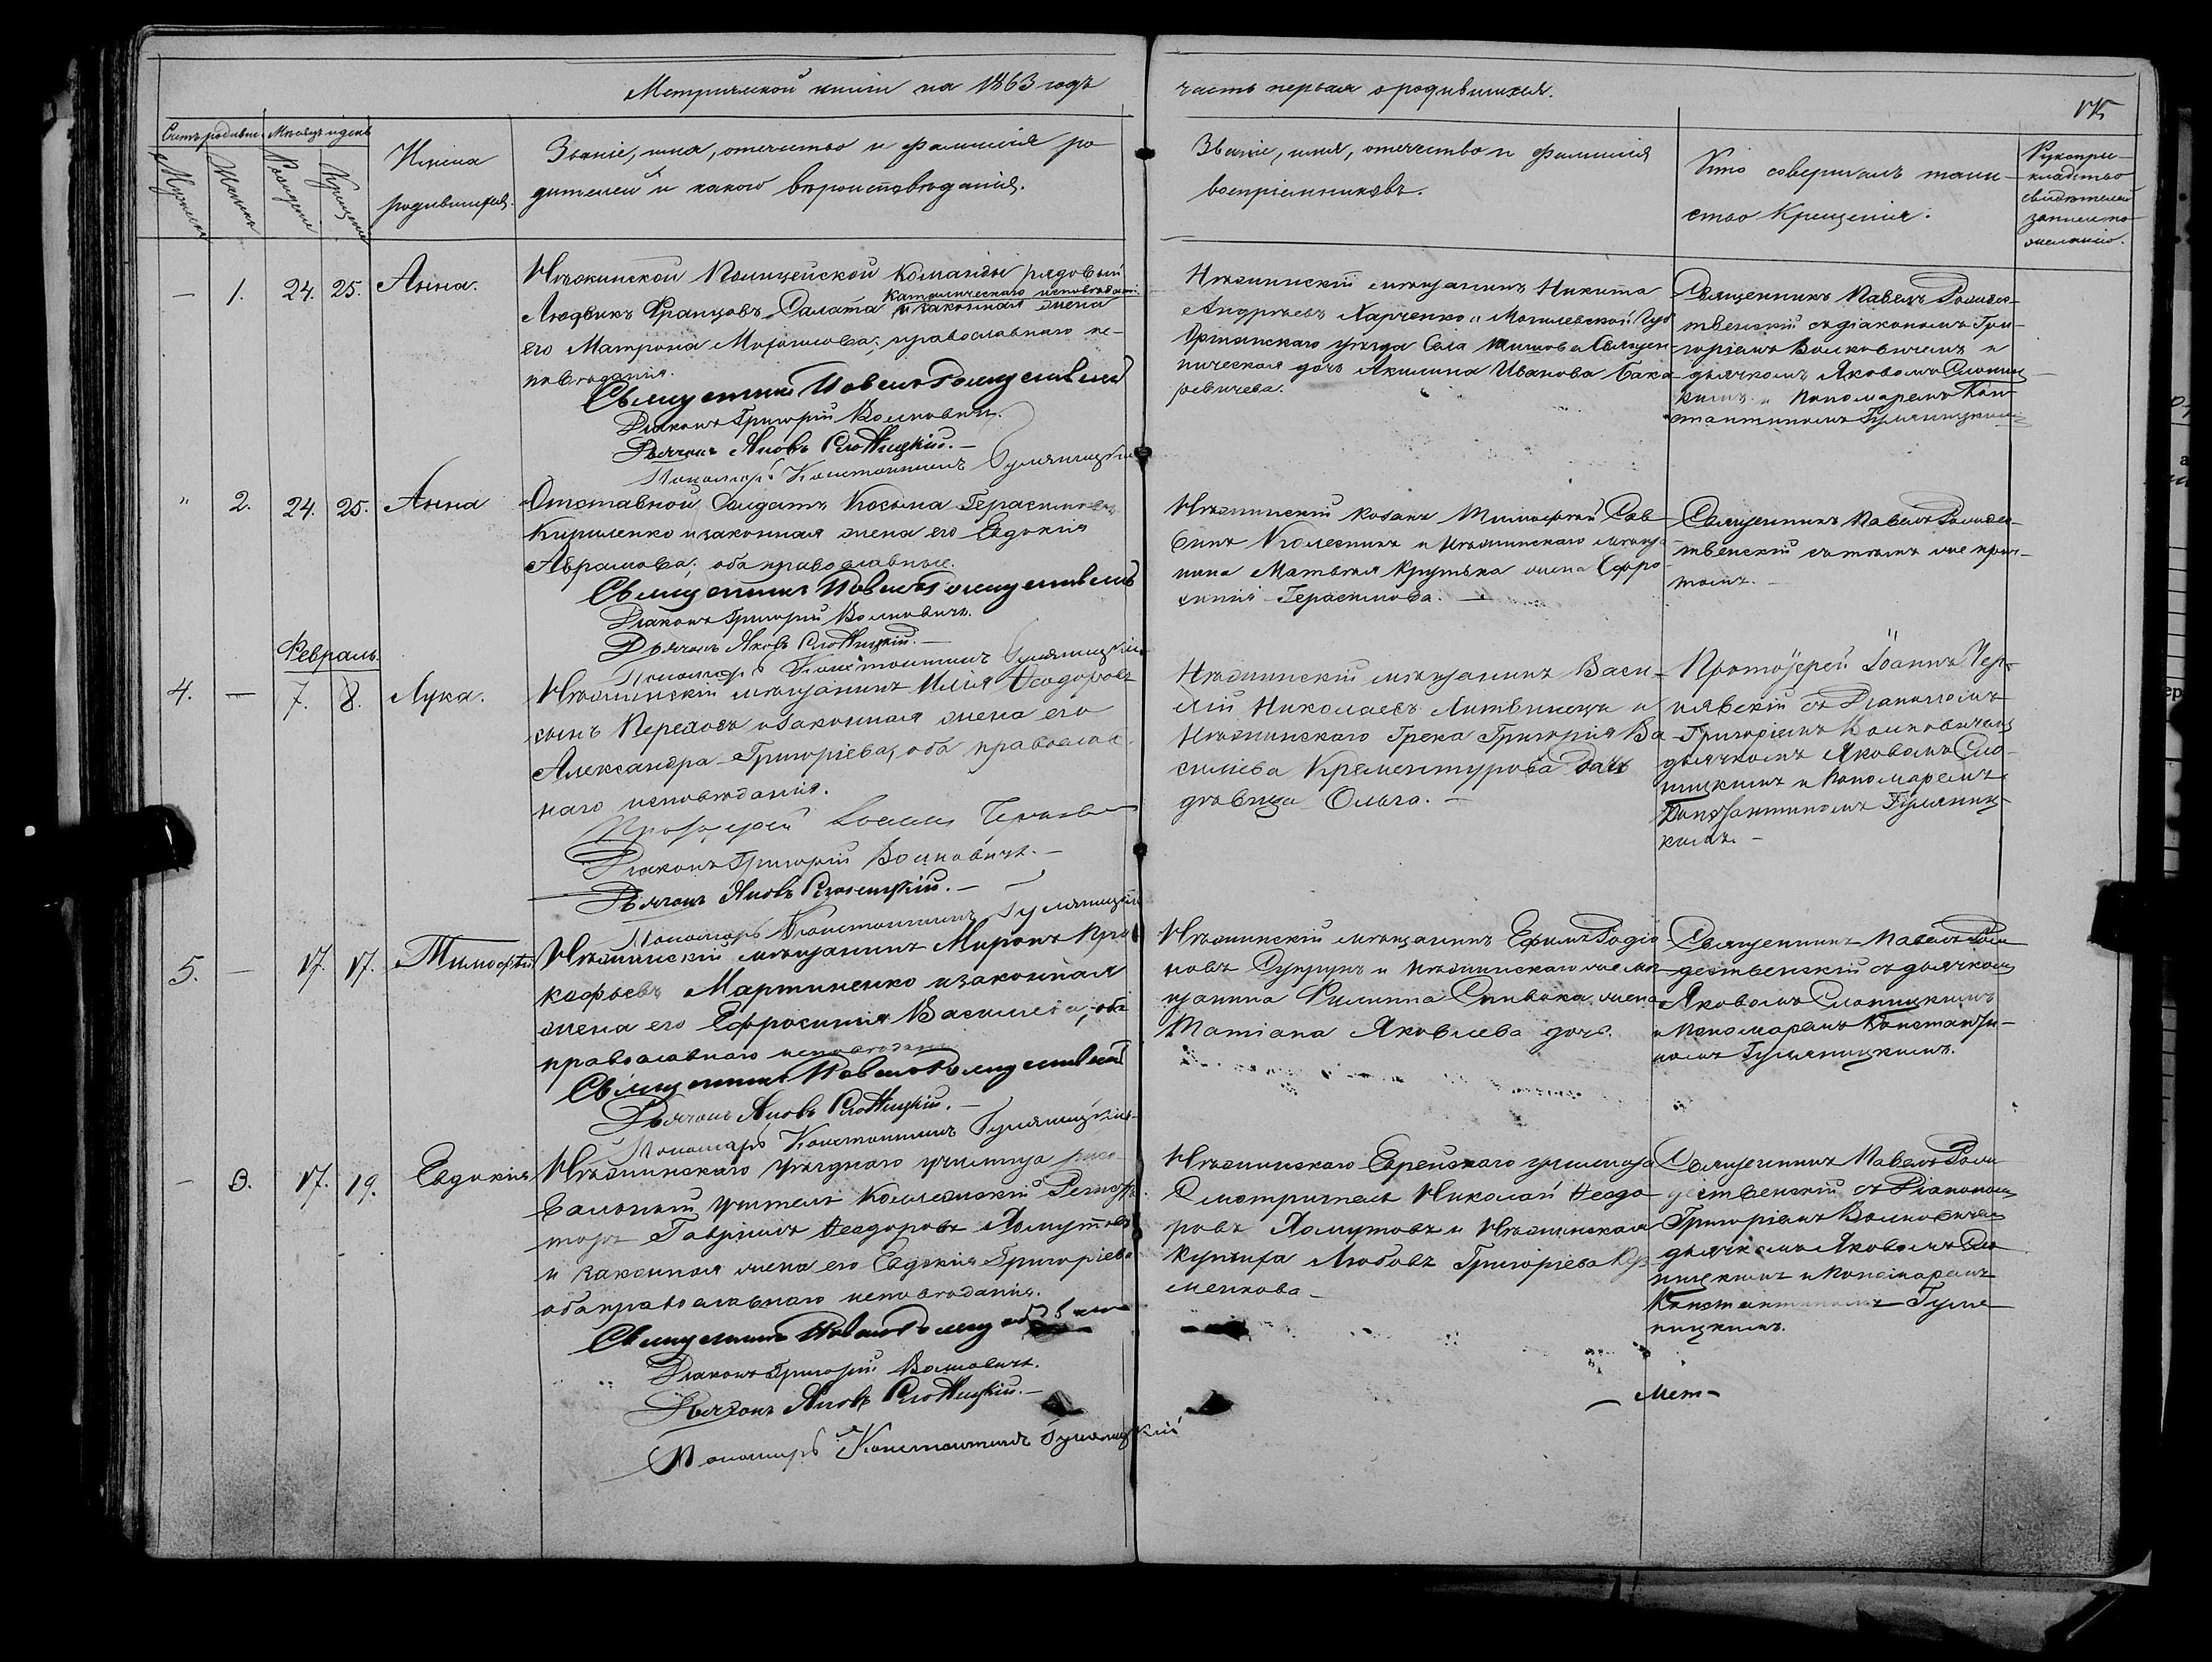 Метрической книги на 1863 годъ
часть первая о родившихся.
Счетъ родивш. Мѣсяцъ и день
Мужеска
Женска
Рожденія
Крещенія
Имена
родившихся.
Званіе, имя, отчество и фамилія ро-
дителей и какого вѣроисповѣданія.
Званіе, имя, отечество и фамилія
воспріемниковъ.
Кто совершалъ таин-
ство Крещенія.
Рукопри-
кладство
свидѣтелей
записи по
желанію.
— 1. 24. 25. Анна.
Нѣжинской Полицейской Команды рядовый
католическаго исповѣданія
Людвикъ Францовъ Салата и законная жена
его Матрона православнаго ис-
повѣданія.
Священникъ Павелъ Рождественскій
Діаконъ Григорій Волковичъ.
Дьячокъ Яковъ Слотицкій.—
Пономарь Константинъ
Нѣжинскій мѣщанинъ Никита
Андреевъ Харченко и Могилевской Губ
Оршанскаго уѣзда Села Священ-
ническая дочь Акилина Иванова Бака-
ревичева.
Священникъ Павелъ Рождес-
твенскій съ діакономъ Гри-
горіемъ Волковичемъ и
дьячкомъ Яковомъ
кимъ и Пономаремъ Кон-
стантиномъ
" 2. 24. 25. Анна
Отставной Солдатъ Косьма Герасимовъ
Кириленко и законная жена его Евдокія
Аврамова; оба православные.
Священникъ Павелъ Рождественскій
Діаконъ Григорій Волковичъ.
Дьячокъ Яковъ Слотицкій.—
Пономарь Константинъ
Нѣжинскій козакъ Тимофей Сав-
Колесникъ и Нѣжинскаго мѣща-
нина Матвѣя Крутька жена Ефро-
синія Герасимова.—
Священникъ Павелъ Рождес-
твенскій съ тѣмъ же прич-
томъ.—
Февраль
4. — 7. 8. Лука.
Нѣжинскій мѣщанинъ Илія Ѳеодоровъ
сынъ Переховъ и законная жена его
Александра Григоріева, оба православ-
наго исповѣданія.
Протоіерей Іоаннъ
Діаконъ Григорій Волковичъ.—
Дьячокъ Яковъ Слотицкій.—
Пономарь Константинъ
Нѣжинскій мѣщанинъ Васи-
лій Николаевъ Литвинецъ и
Нѣжинскаго Грека Григорія Ва-
силіева Крементурова дочь
дѣвица Ольга.—
Протоіерей Іоаннъ
съ Діакономъ
Григоріемъ Волковичемъ
дьячкомъ Яковомъ Сло-
тицкимъ и Пономаремъ
Константиномъ
кимъ.—
5. — 17. 17. Тимофей
Нѣжинскій мѣщанинъ Миронъ Про-
кофьевъ Мартиненко и законная
жена его Ефросинія Василіева, оба
православнаго исповѣданія
Священникъ Павелъ Рождественскій
Дьячокъ Яковъ Слотицкій.—
Пономарь Константинъ
Нѣжинскій мѣщанинъ Ефимъ Родіо-
новъ Супрунъ и нѣжинскаго же мѣ-
щанина Филиппа Спивака жена
Татіана Яковлева дочь.
Священникъ Павелъ Рож-
дественскій съ дьячкомъ
Яковомъ Слотицкимъ
и Пономаремъ Константи-
номъ
— 3. 17. 19. Евдокія
Нѣжинскаго уѣзднаго училища рисо-
вальный учитель Коллежскій Регистра-
торъ Гавріилъ Ѳеодоровъ Хомутовъ
и законная жена его Евдокія Григоріева
оба православнаго исповѣданія.
Священникъ Павелъ Рождественскій
Діаконъ Григорій Волковичъ.
Дьячокъ Яковъ Слотицкій.—
Пономарь Константинъ
Нѣжинскаго Еврейскаго училища
Смотритель Николай Ѳеодо-
ровъ Хомутовъ и Нѣжинская
купчиха Любовь Григоріева
менкова—
Священникъ Павелъ Рож-
дественскій съ Діакономъ
Григоріемъ Волковичемъ
дьячкомъ Яковомъ Сло-
тицкимъ и Пономаремъ
Константиномъ
ницкимъ.
— Мет-